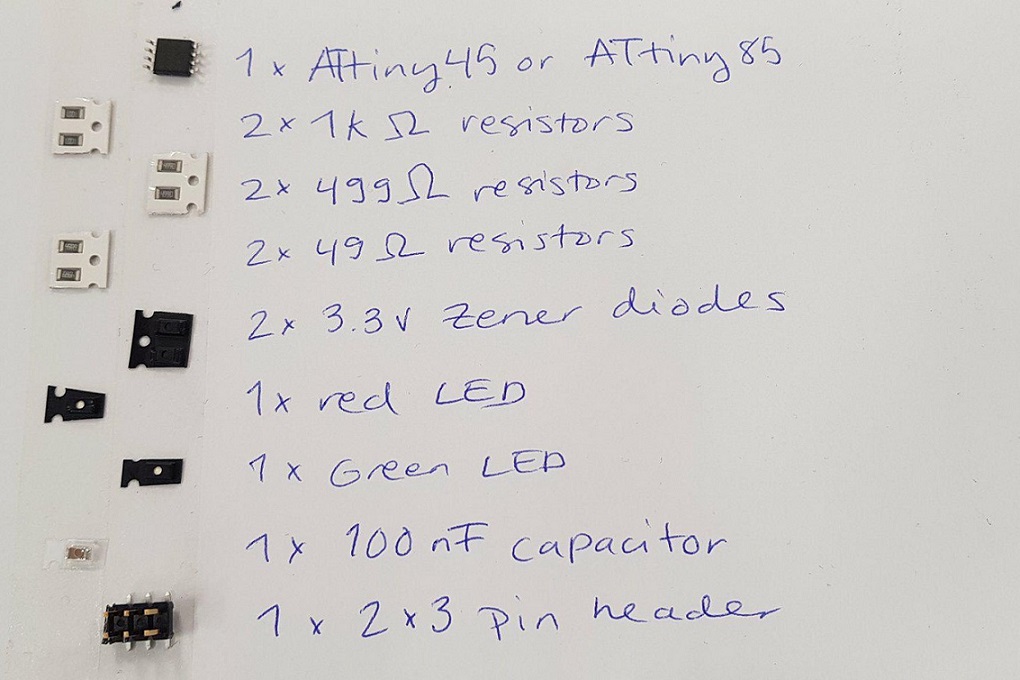 1 x ATtiny45 or ATtiny85
2 x 1k Ω resistors
2 x 499Ω resistors
2 x 49 Ω resistors
2 x 3.3V Zener diodes
1 x red LED
1 x Green LED
1 x 100 nF capacitor
1 x 2x3 pin header